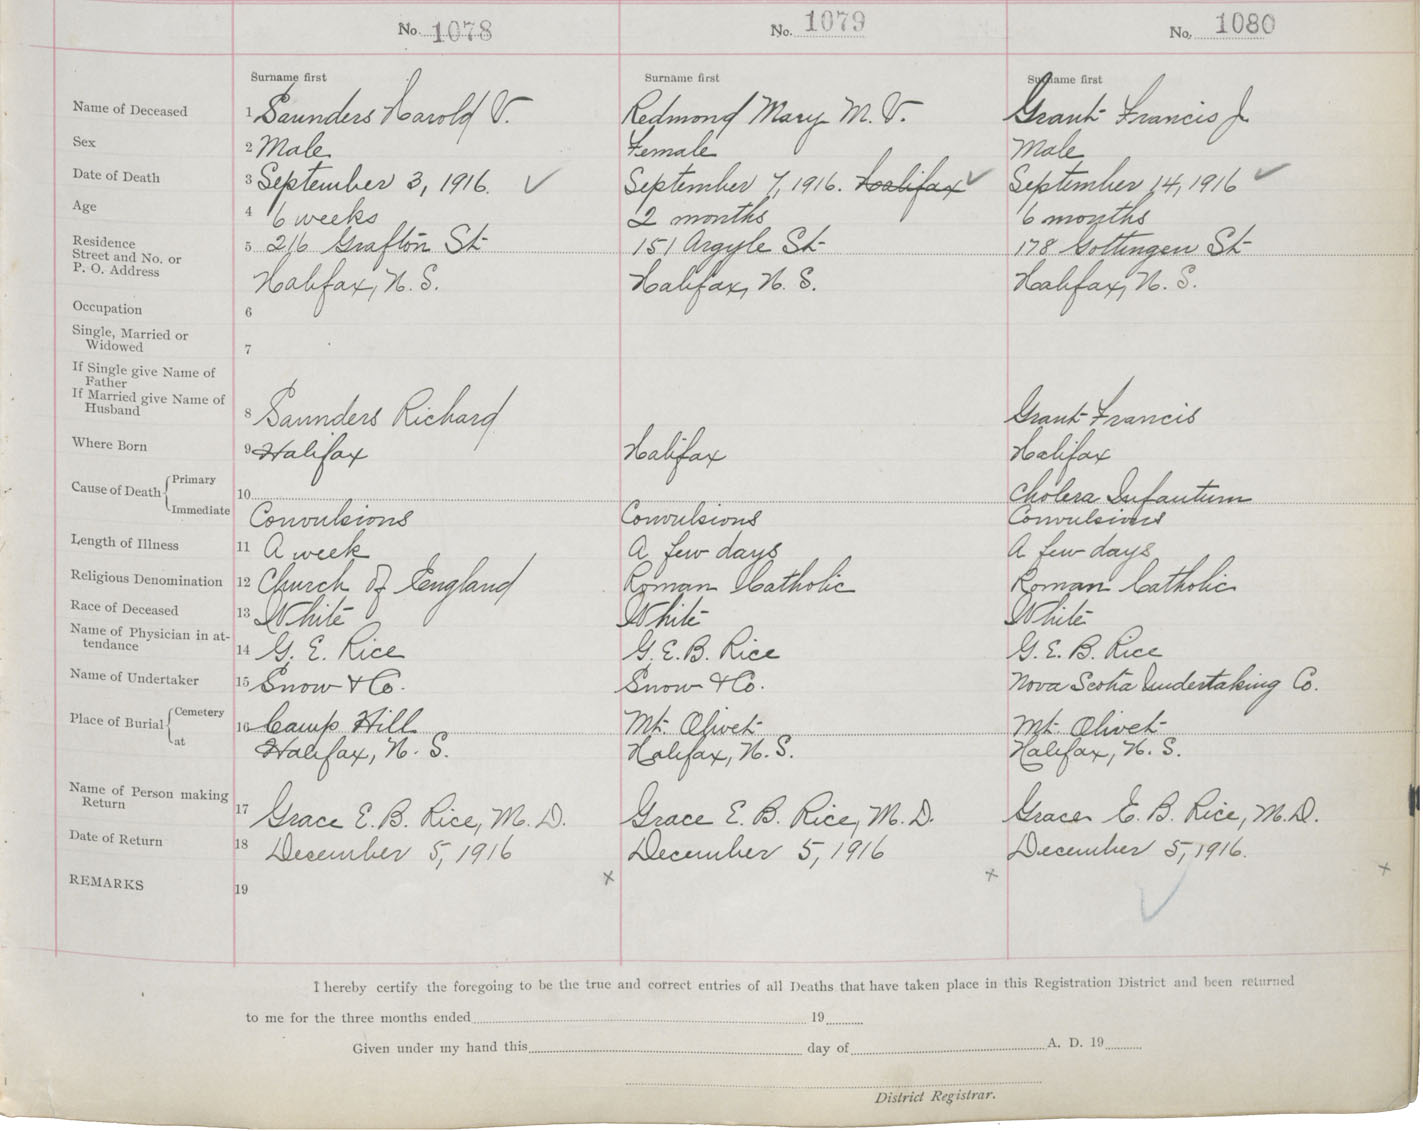 No. 1078 No. 1079 No. 1080
Surname first Surname first Surname first
Name of Deceased 1 Saunders Harold V. Redmond Mary M. V. Grant Francis J
Sex 2 Male Female Male
Date of Death 3 September 3, 1916. ✓ September 7, 1916. Halifax ✓ September 14, 1916 ✓
Age 4 6 weeks 2 months 6 months
Residence
Street and No. or 5 216 Grafton St 151 Argyle St 178 Gottingen St
P. O. Address Halifax, N. S. Halifax, N. S. Halifax, N. S.
Occupation 6
Single, Married or
Widowed 7
If Single give Name of
Father
If Married give Name of
Husband 8 Saunders Richard Grant Francis
Where Born 9 Halifax Halifax Halifax
Cause of Death { Primary 10 Cholera Infantum
Immediate Convulsions Convulsions Convulsions
Length of Illness 11 A week A few days A few days
Religious Denomination 12 Church of England Roman Catholic Roman Catholic
Race of Deceased 13 White White White
Name of Physician in at-
tendance 14 G. E. Rice G. E. B. Rice G. E. B. Rice
Name of Undertaker 15 Snow & Co. Snow & Co. Nova Scotia Undertaking Co.
Place of Burial { Cemetery 16 Camp Hill Mt. Olivet Mt. Olivet
at Halifax, N. S. Halifax, N. S. Halifax, N. S.
Name of Person making
Return 17 Grace E. B. Rice, M. D. Grace E. B. Rice, M. D. Grace E. B. Rice, M.D.
Date of Return 18 December 5, 1916 December 5, 1916 December 5, 1916.
REMARKS 19 x x x
I hereby certify the foregoing to be the true and correct entries of all Deaths that have taken place in this Registration District and been returned
to me for the three months ended 19
Given under my hand this day of A. D. 19
District Registrar.